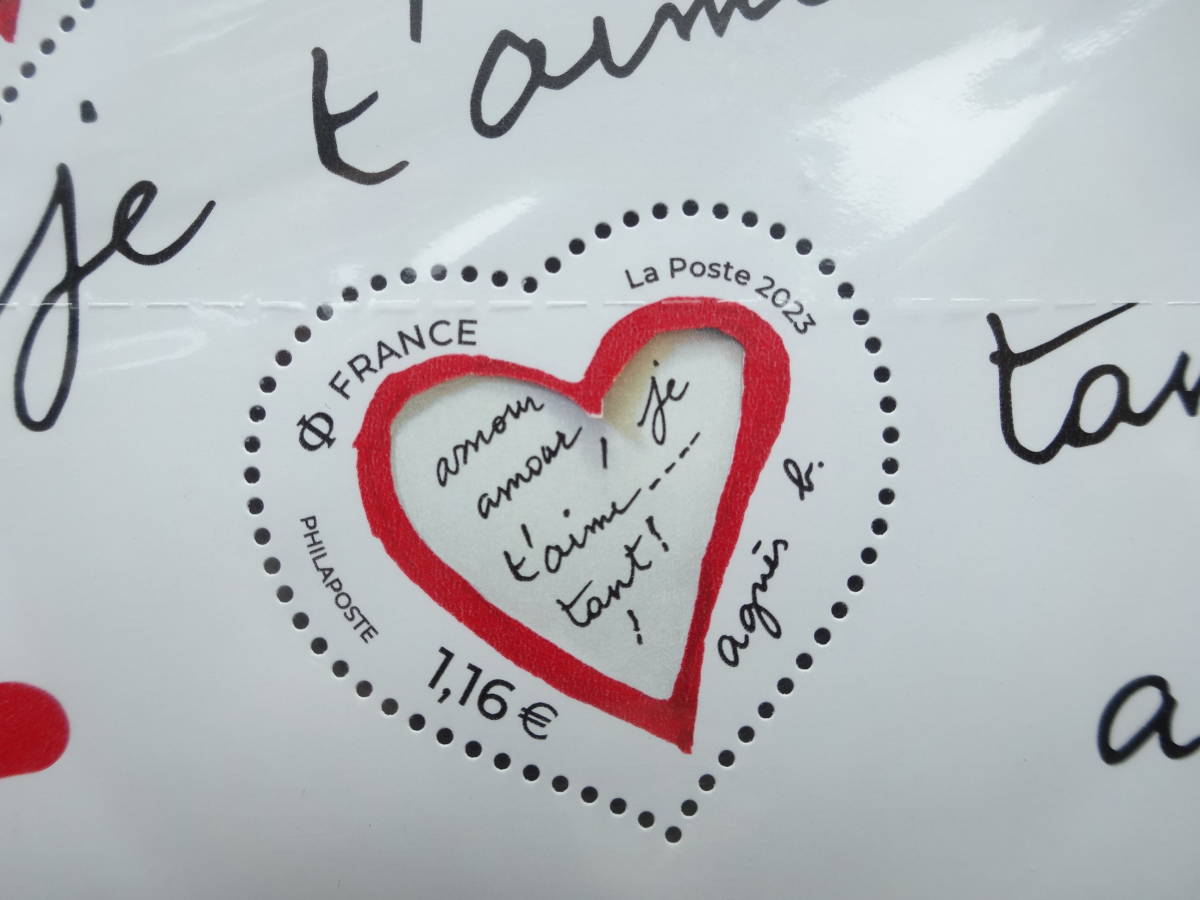 t'aime
je
La Poste 2023
Φ FRANCE
amour
amour, je
t'aime----
tant!
!
agnès b.
PHILAPOSTE
1,16 €